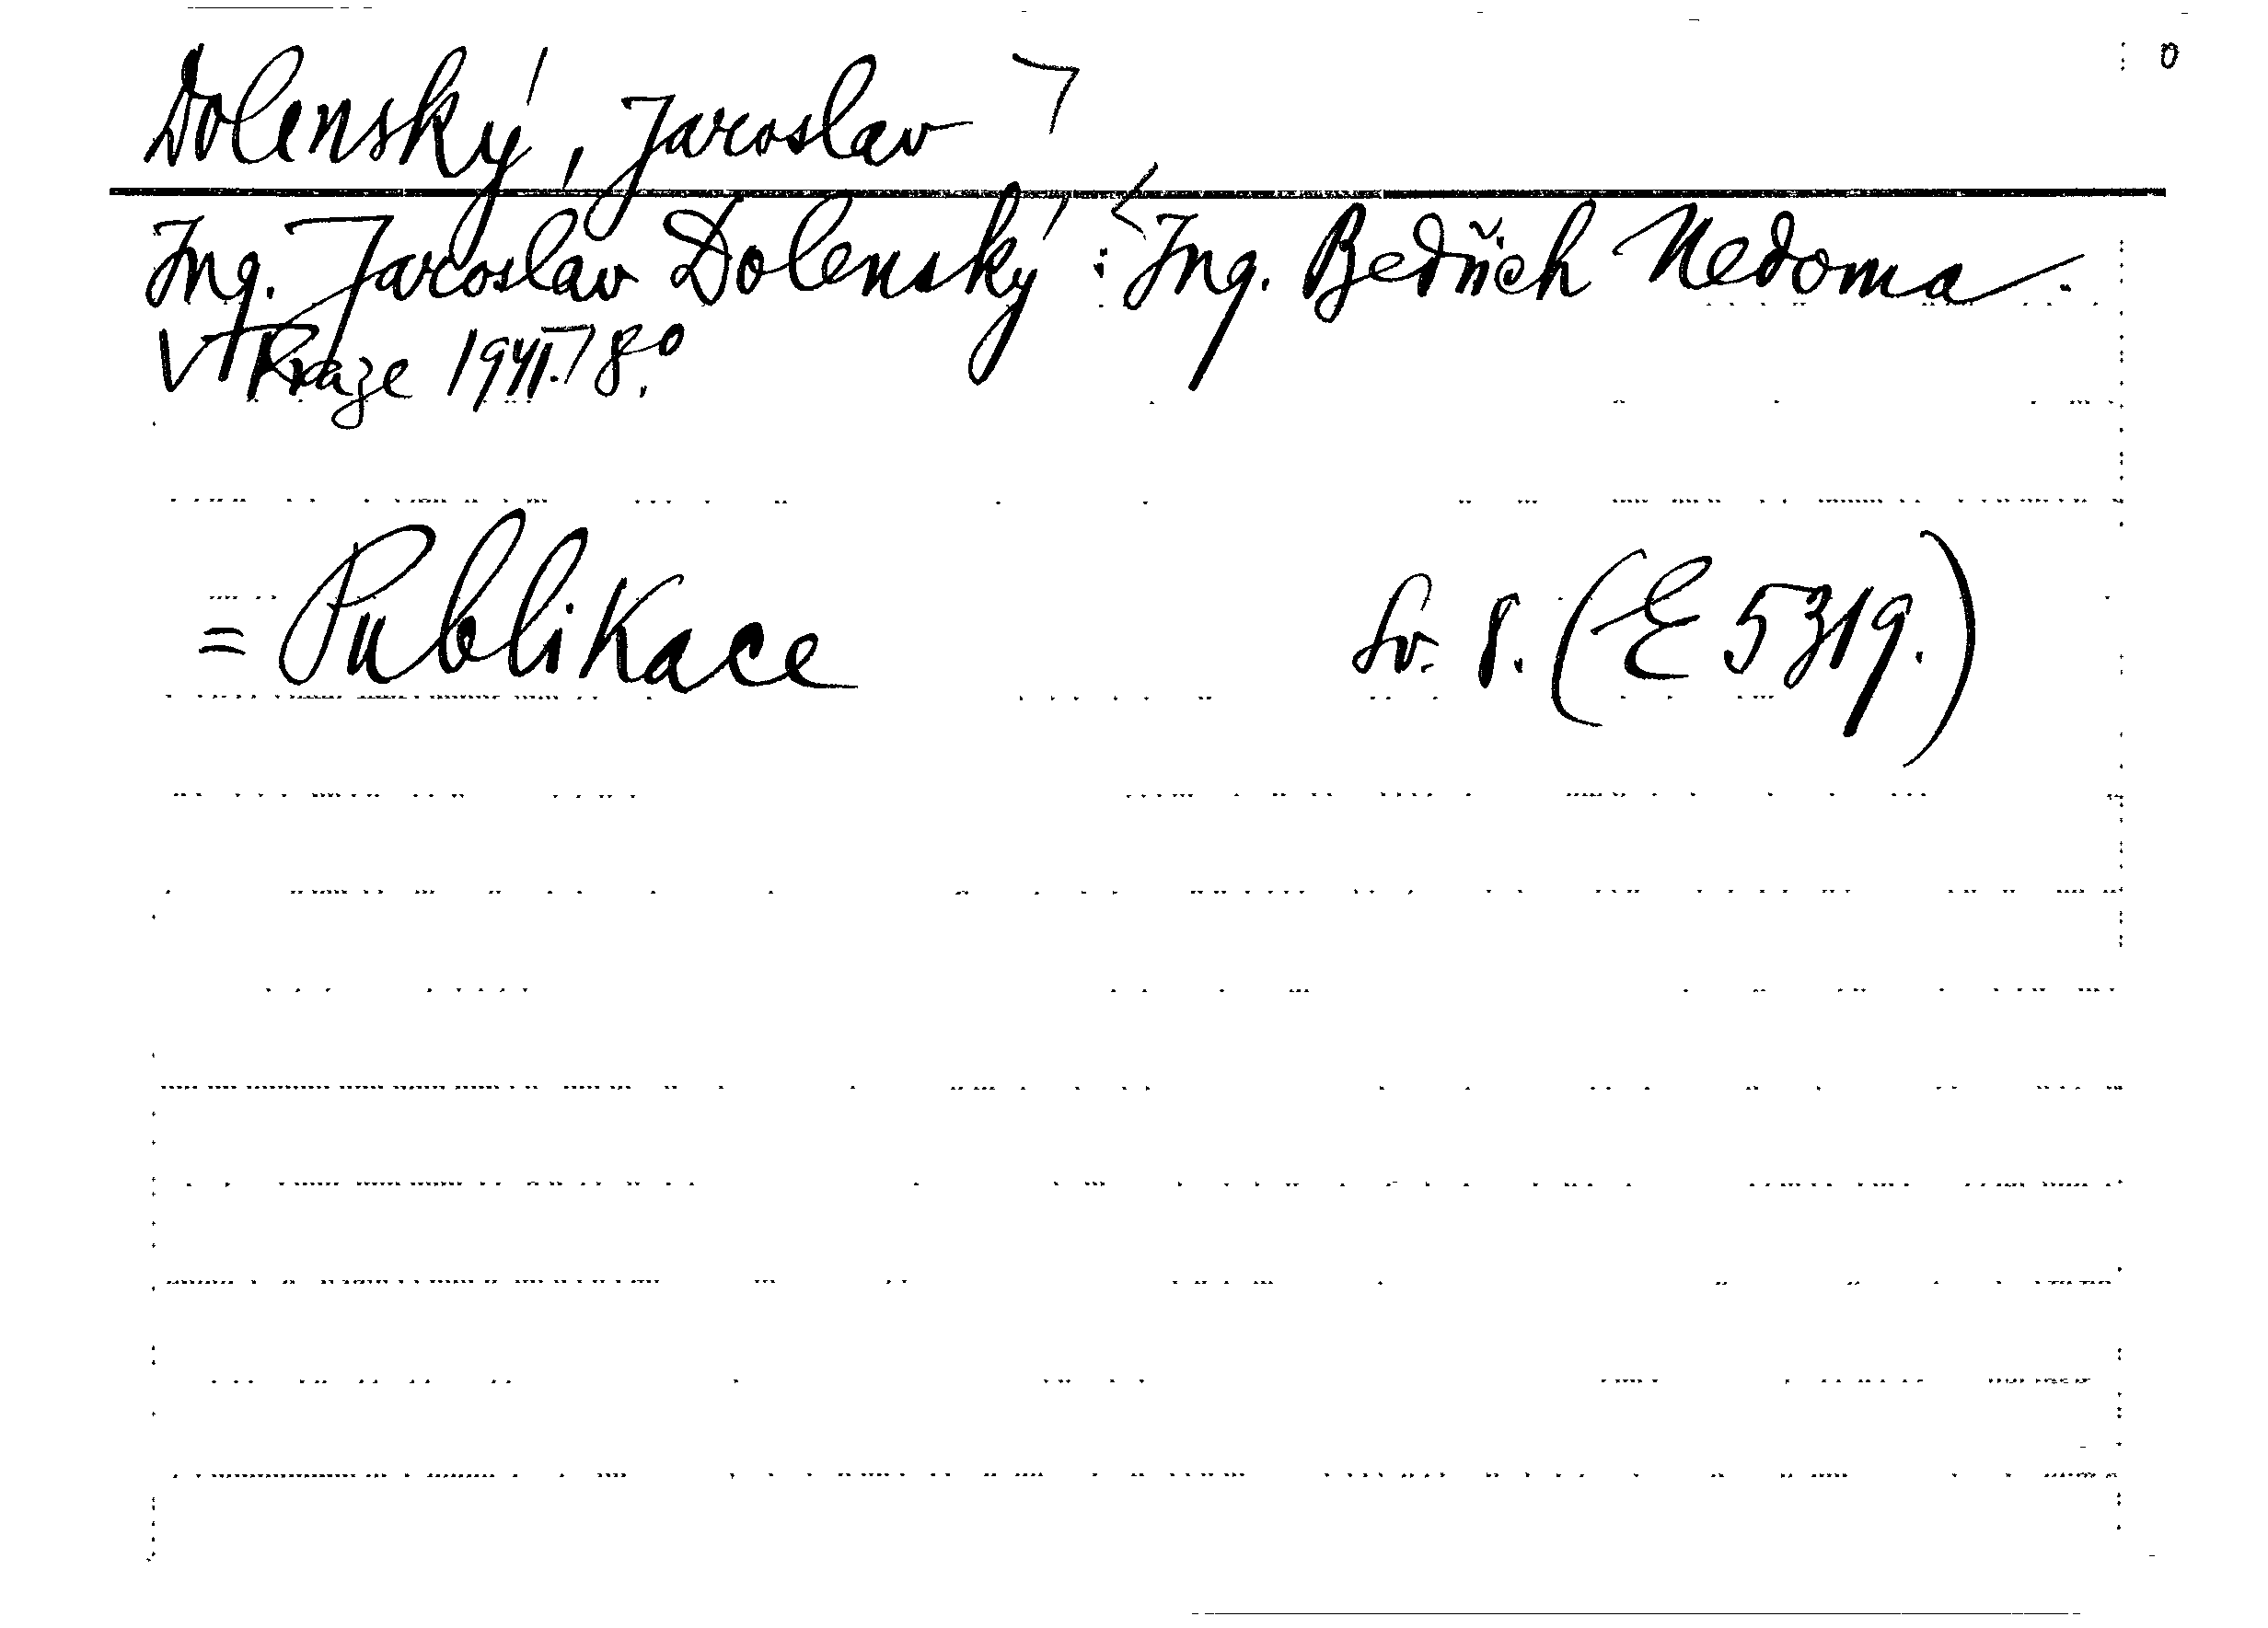 Dolenský, Jaroslav
Ing. Jaroslav Dolenský: Ing. Bedřich Nedoma.
V Praze 1941. 8.°
= Publikace Sv. 8. (E 5319.)